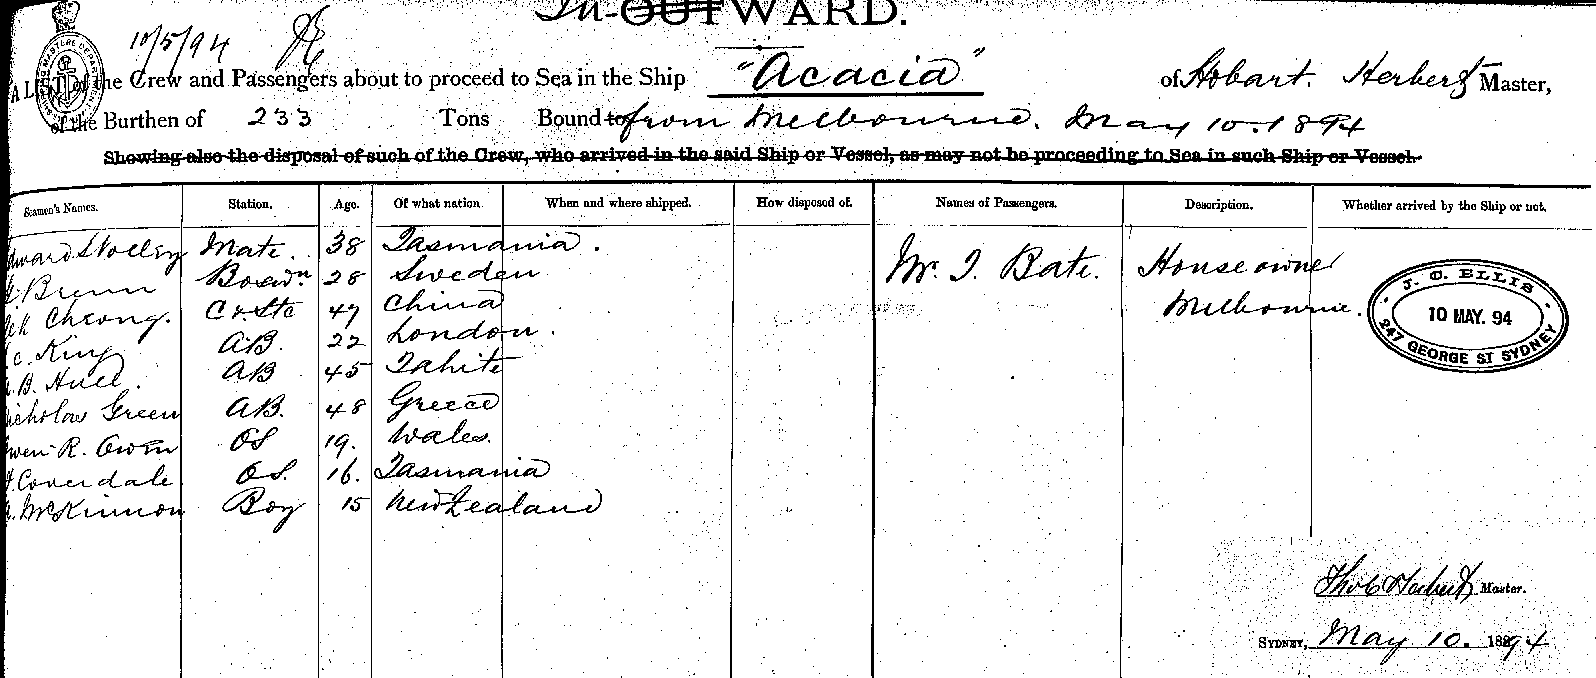 In-OUTWARD.
10/5/94
A LIST of the Crew and Passengers about to proceed to Sea in the Ship "Acacia" of Hobart. Herbert Master,
of the Burthen of 233 Tons Bound to from Melbourne. May 10. 1894
Showing also the disposal of such of the Crew, who arrived in the said Ship or Vessel, as may not be proceeding to Sea in such Ship or Vessel.
Seamen's Names. Station. Age. Of what nation. When and where shipped. How disposed of. Names of Passengers. Description. Whether arrived by the Ship or not.
Mate. 38 Tasmania. Mr. T. Bate. House owner
Boswn. 28 Sweden Melbourne.
Cheong. C & Std 47 China
King AB. 22 London.
B. Hull. AB 45 Tahite
Nicholas Green AB. 48 Greece
Owen R. Owen OS 19. Wales.
Coverdale. OS. 16. Tasmania
McKinnon Boy 15 New Zealand
J. C. ELLIS
10 MAY. 94
247 GEORGE ST SYDNEY
Thos Herbert Master.
SYDNEY, May 10. 1894